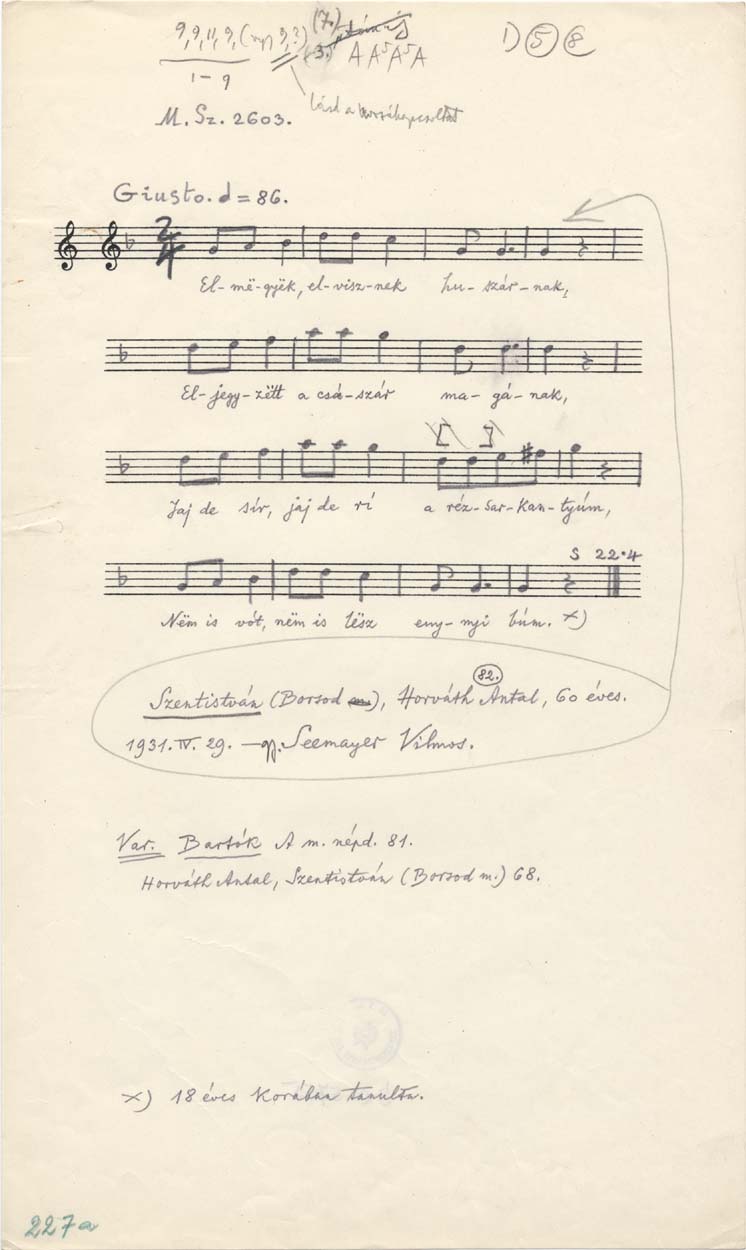 9, 9, 11, 9, (vagy 9, ?) (7.)
1 – 9 (3. A A⁵ A⁵ A
1) ⑤ 8
M. Sz. 2603. lásd a
Giusto. d = 86.
2/4
El-më-gyëk, el-visz-nek hu-szár-nak,
El-jegy-zëtt a csá-szár ma-gá-nak,
Jaj de sír, jaj de rí a réz-sar-kan-tyúm,
S 22·4
Nëm is vót, nëm is lësz eny-nyi búm. ×)
82.
Szentistván (Borsod m.), Horváth Antal, 60 éves.
1931. IV. 29. – gy. Seemayer Vilmos.
Var. Bartók A m. népd. 81.
Horváth Antal, Szentistván (Borsod m.) 68.
×) 18 éves korában tanulta.
227a